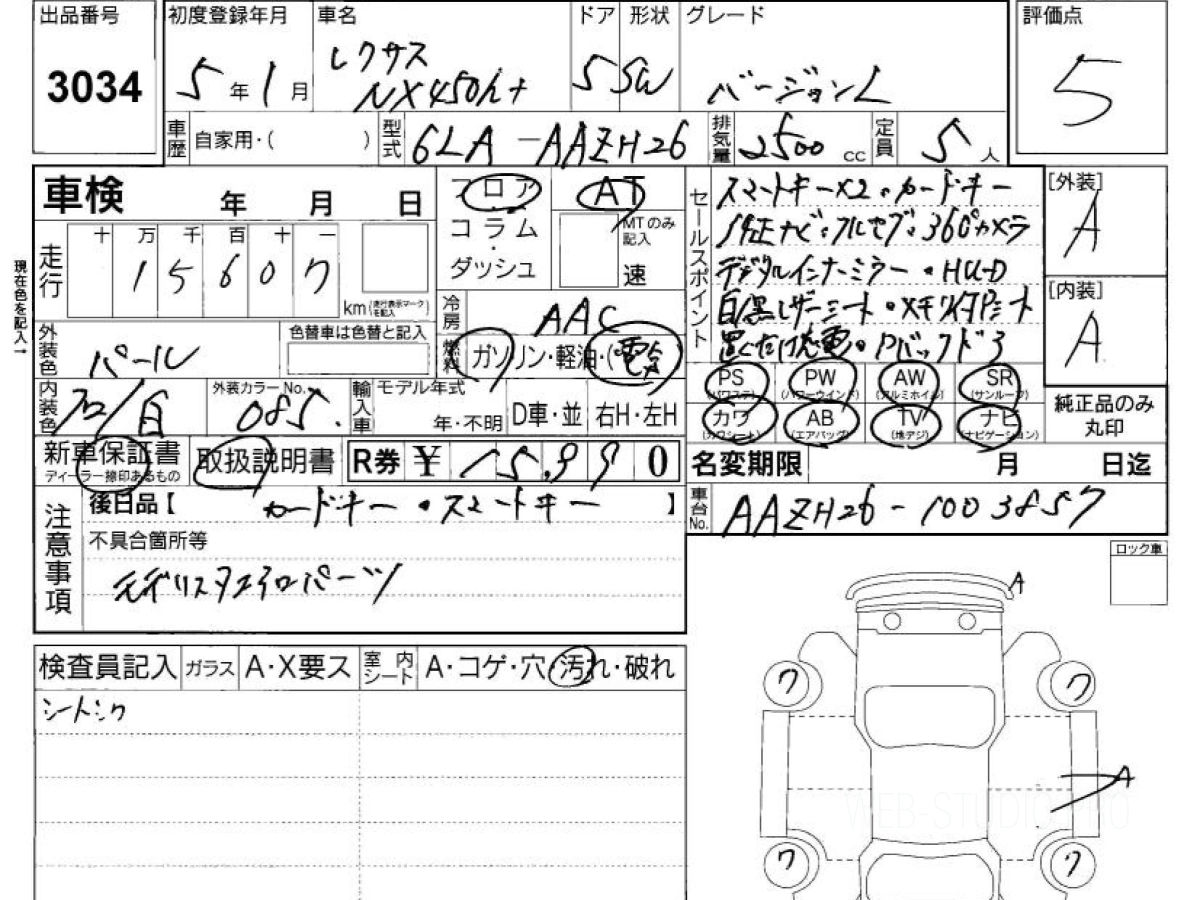 出品番号 初度登録年月 車名 ドア 形状 グレード 評価点
3034 5年1月 レクサス NX450h+ 5 SW バージョンL 5
車歴 自家用・( ) 型式 6LA-AAZH26 排気量 2500 cc 定員 5人
車検 年 月 日
フロア・コラム・ダッシュ
AT
MTのみ記入
速
セールスポイント
スマートキー×2・カードキー
純正ナビ・フルセグ・360°カメラ
デジタルインナーミラー・HUD
白黒レザーシート・メモリ付Pシート
置くだけ充電・Pバックドア
[外装] A
[内装] A
現在色を記入→
走行 十 万 千 百 十 一
15607
km (走行表示マークを記入)
冷房 AAC
燃料 ガソリン・軽油・(電気)
外装色 パール
色替車は色替と記入
内装色 クロ/白
外装カラーNo. 085
輸入車 モデル年式 年・不明 D車・並 右H・左H
PS (パワステ) PW (パワーウインド) AW (アルミホイル) SR (サンルーフ)
カワ (カワシート) AB (エアバッグ) TV (地デジ) ナビ (ナビゲーション)
純正品のみ丸印
新車保証書 ディーラー捺印あるもの
取扱説明書
R券 ¥ 15,990
名変期限 月 日迄
車台No. AAZH26-1003857
注意事項
後日品【 カードキー・スマートキー 】
不具合箇所等
モデリスタエアロパーツ
ロック車
検査員記入 ガラス A・X要ス 室内シート A・コゲ・穴・汚れ・破れ
シートシワ
A
ワ ワ
A
ワ ワ
WEB-STUDIO.PRO